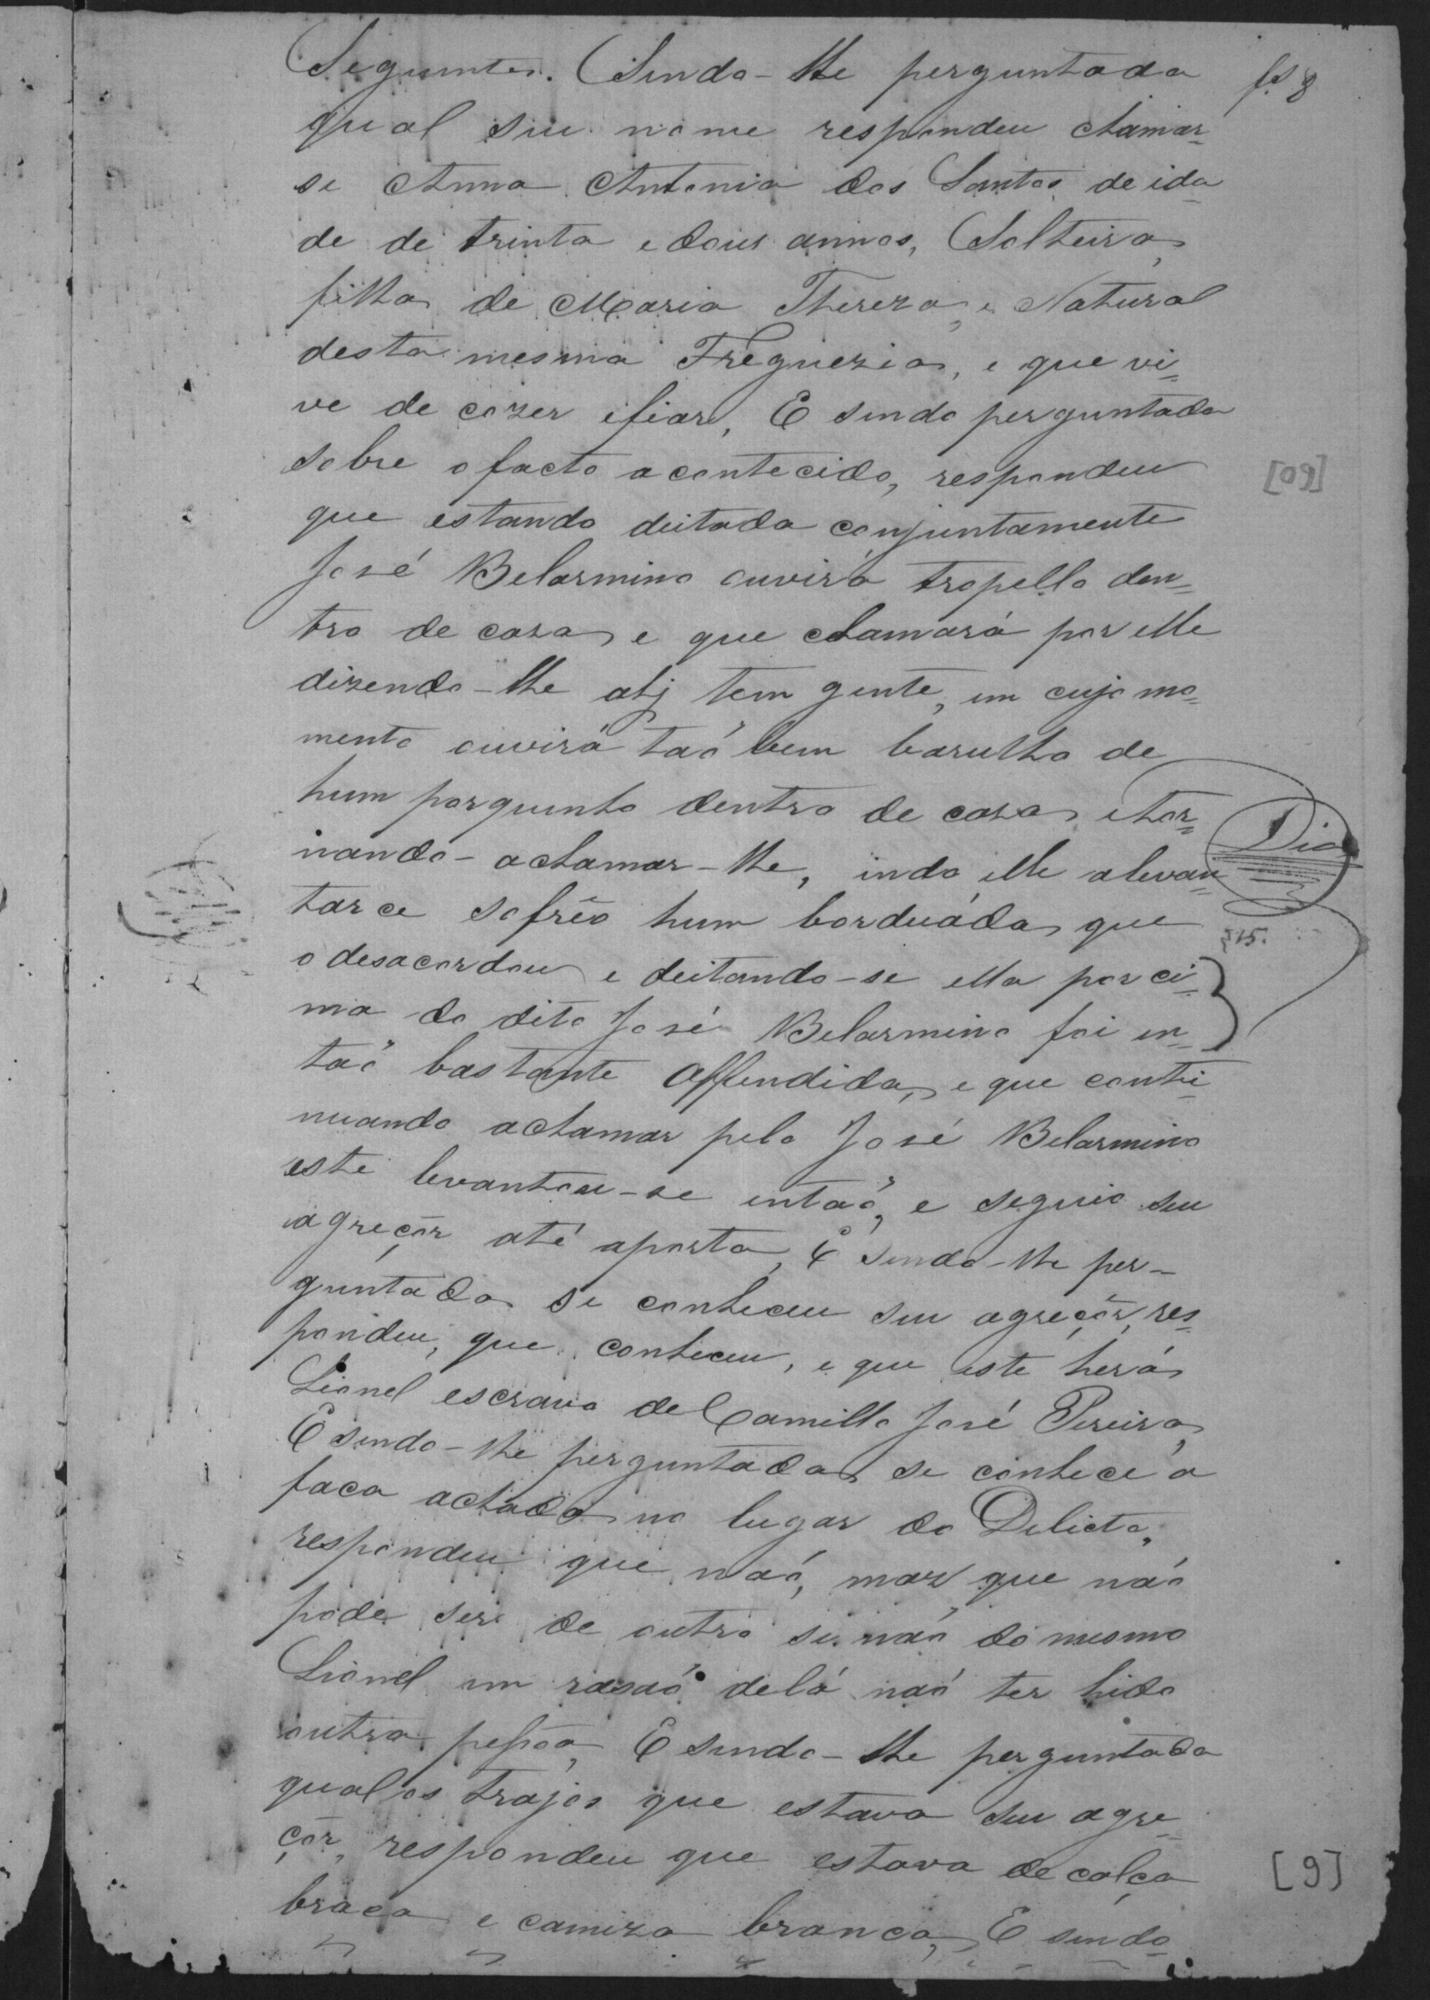 Seguintes. Sendo-lhe perguntada
fs 8
qual seu nome respondeu chamar=
se Anna Antonia dos Santos, de ida=
de de trinta e dous annos, Solteira,
filha de Maria Thereza, e Natural
desta mesma Freguezia, e que vi=
ve de cozer e fiar, E sendo perguntada
sobre o facto acontecido, respondeu
[09]
que estando deitada conjuntamente
José Belarmino ouvirá tropello den=
tro de caza e que chamará por elle
dizendo-lhe ahj tem gente, em cujo mo=
mento ouvirá taõ bem barulho de
hum porquinho dentro de caza, e tor=
nando-achamar-lhe, indo elle alevan=
Dia
tarce sofrêo hum borduáda que
o desacordou e deitando-se ella por ci=
ma do dito José Belarmino foi en=
taõ bastante Offendida, e que conti=
nuando achamar pelo José Belarmino
este levantou-se entaõ, e seguio seu
agreçôr até aporta, E sendo-lhe per=
guntada se conheceu seu agreçôr, res=
pondeu, que conheceu, e que este herá
Lionel escravo de Camillo José Pereira,
E sendo-lhe perguntada se conhece a
faca achada no lugar do Delicto,
respondeu que naõ, maz que naõ
pode ser de outro se naõ do mesmo
Lionel em rasaõ de lá naõ ter hido
outra peſsôa, E sendo-lhe perguntada
qual os trajos que estava seu agre=
çôr, respondeu que estava de calça
[9]
braca e camiza branca, E sendo